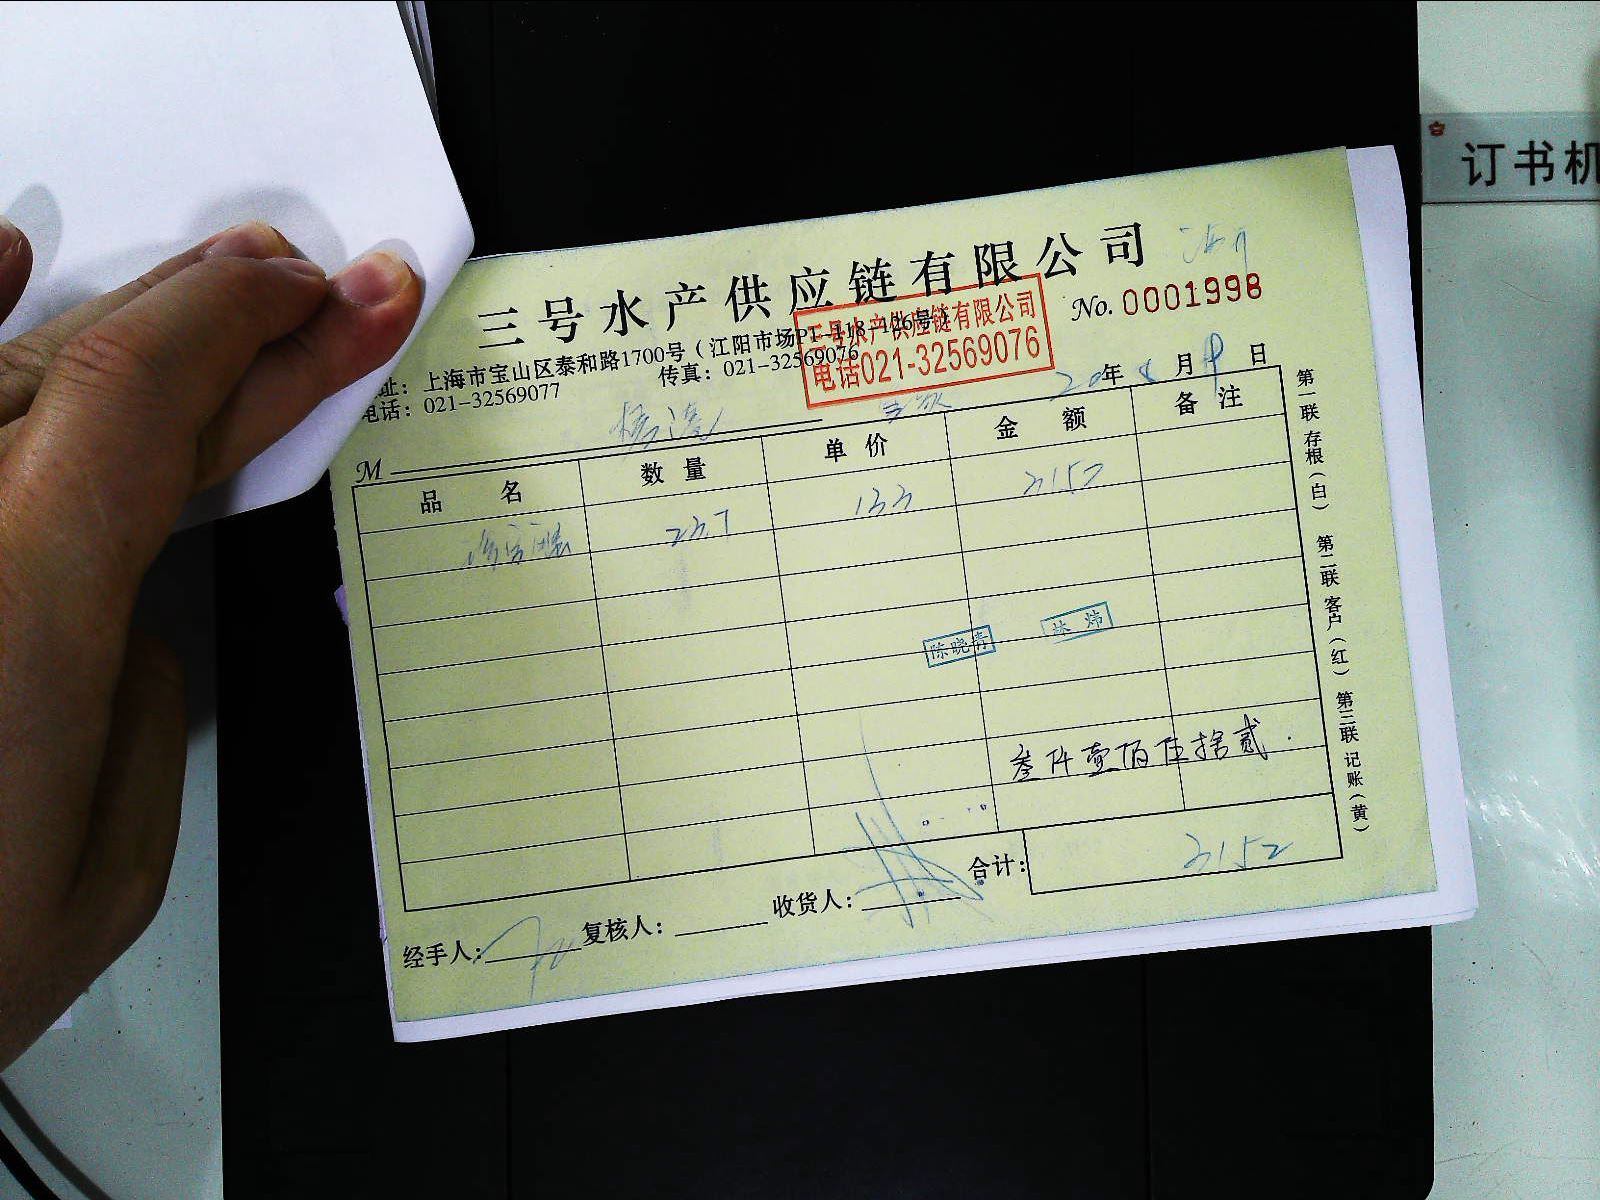 订书机
三号水产供应链有限公司
No. 0001998
址：上海市宝山区泰和路1700号（江阳市场P1-118-126号）
电话：021-32569077 传真：021-32569076
三号水产供应链有限公司
电话021-32569076
20年8月19日
M
品名 数量 单价 金额 备注
23.7 133 3152
陈晓青 林炜
叁仟壹佰伍拾贰
合计：3152
经手人： 复核人： 收货人：
第一联 存根（白） 第二联 客户（红） 第三联 记账（黄）